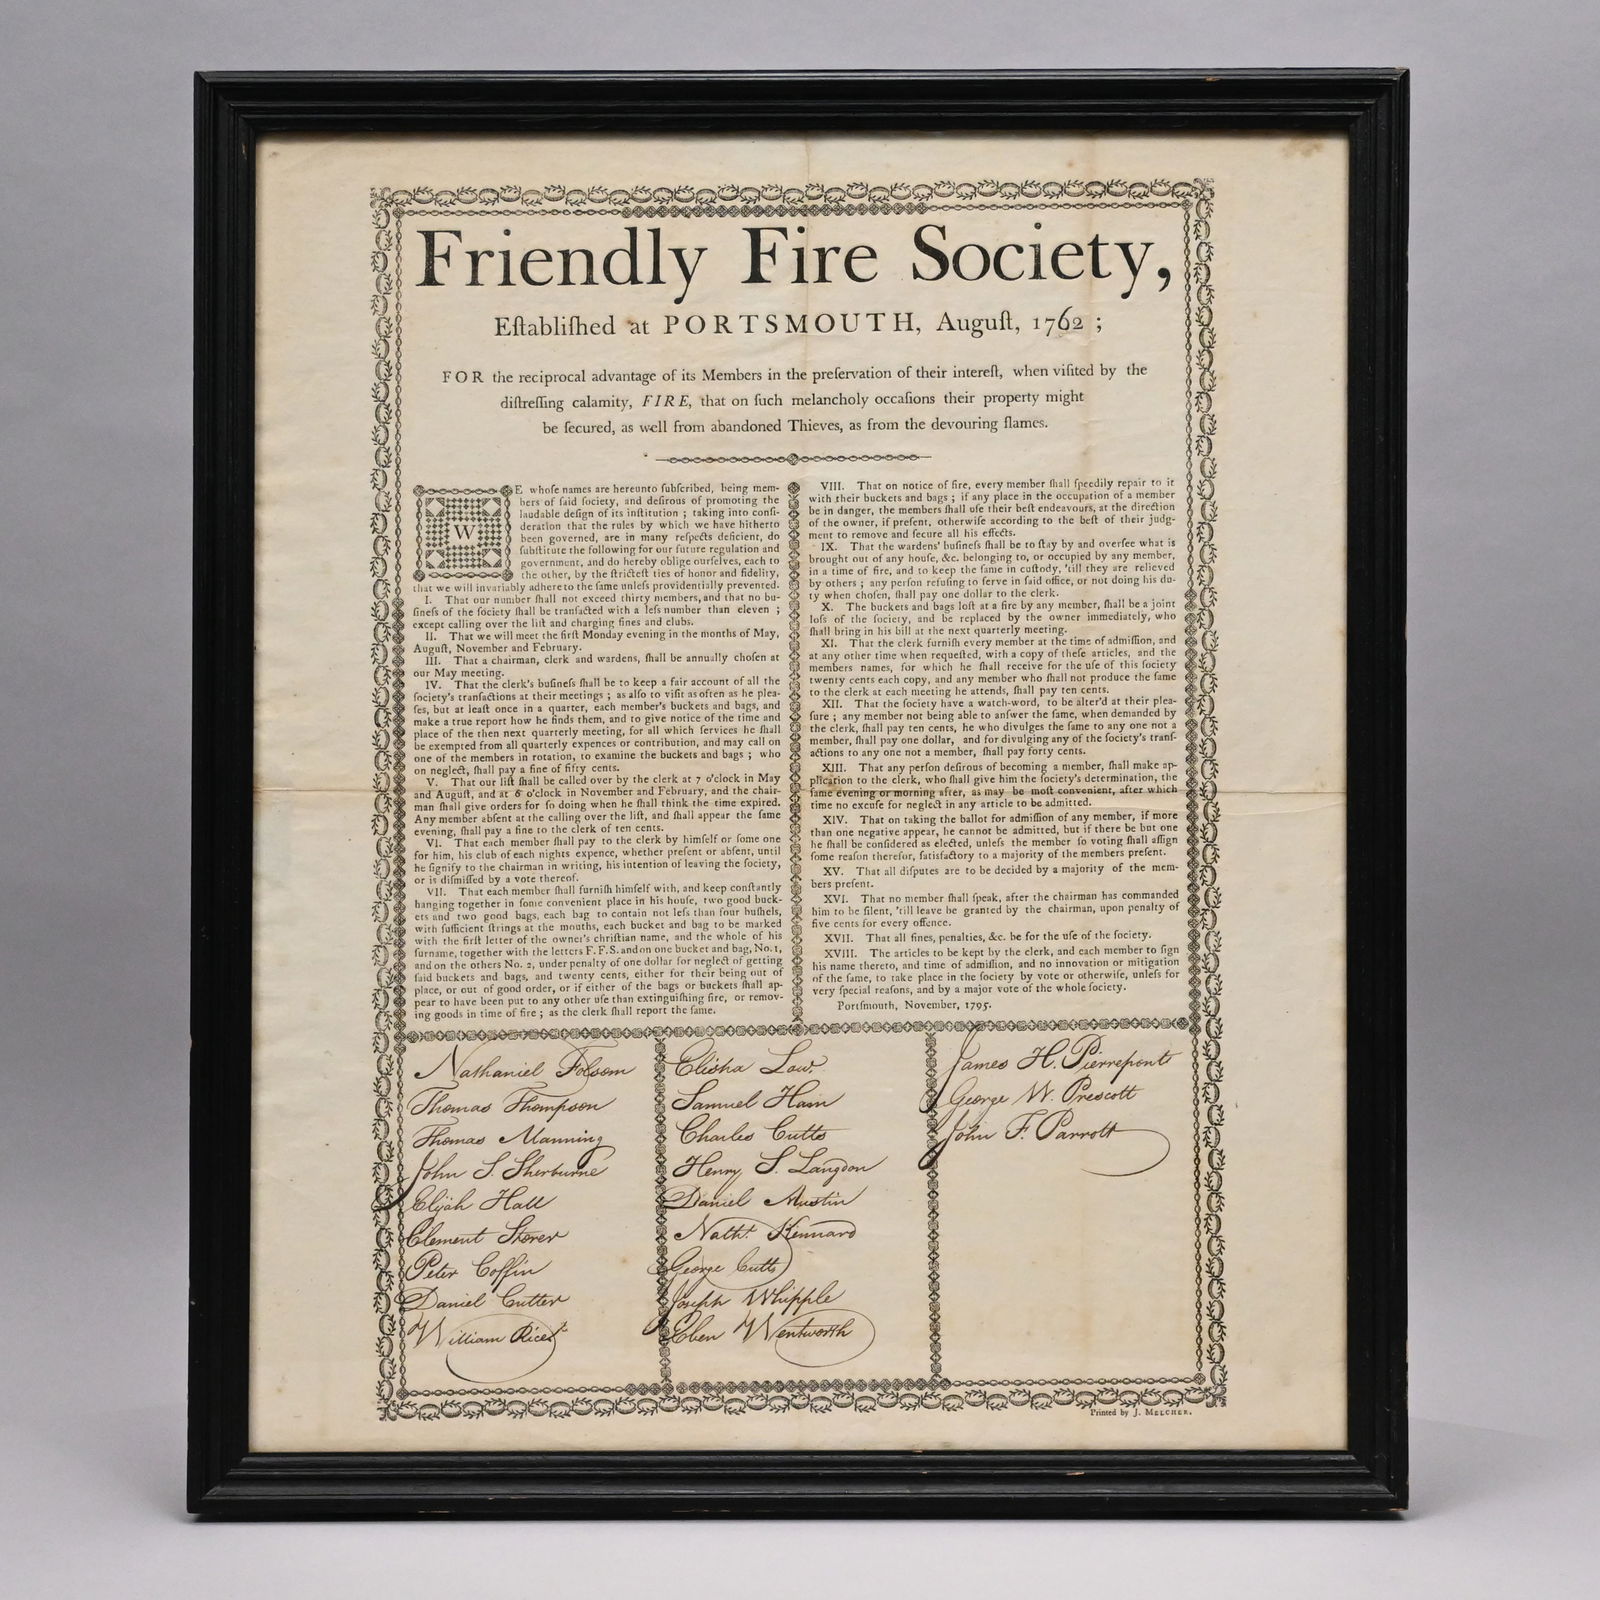 Friendly Fire Society,
Eſtabliſhed at PORTSMOUTH, Auguſt, 1762 ;
FOR the reciprocal advantage of its Members in the preſervation of their intereſt, when viſited by the
diſtreſſing calamity, FIRE, that on ſuch melancholy occaſions their property might
be ſecured, as well from abandoned Thieves, as from the devouring flames.
WE whoſe names are hereunto ſubſcribed, being mem-
bers of ſaid ſociety, and deſirous of promoting the
laudable deſign of its inſtitution ; taking into conſi-
deration that the rules by which we have hitherto
been governed, are in many reſpects deficient, do
ſubſtitute the following for our future regulation and
government, and do hereby oblige ourſelves, each to
the other, by the ſtricteſt ties of honor and fidelity,
that we will invariably adhere to the ſame unleſs providentially prevented.
I. That our number ſhall not exceed thirty members, and that no bu-
ſineſs of the ſociety ſhall be tranſacted with a leſs number than eleven ;
except calling over the liſt and charging fines and clubs.
II. That we will meet the firſt Monday evening in the months of May,
Auguſt, November and February.
III. That a chairman, clerk and wardens, ſhall be annually choſen at
our May meeting.
IV. That the clerk's buſineſs ſhall be to keep a fair account of all the
ſociety's tranſactions at their meetings ; as alſo to viſit as often as he plea-
ſes, but at leaſt once in a quarter, each member's buckets and bags, and
make a true report how he finds them, and to give notice of the time and
place of the then next quarterly meeting, for all which ſervices he ſhall
be exempted from all quarterly expences or contribution, and may call on
one of the members in rotation, to examine the buckets and bags ; who
on neglect, ſhall pay a fine of fifty cents.
V. That our liſt ſhall be called over by the clerk at 7 o'clock in May
and Auguſt, and at 6 o'clock in November and February, and the chair-
man ſhall give orders for ſo doing when he ſhall think the time expired.
Any member abſent at the calling over the liſt, and ſhall appear the ſame
evening, ſhall pay a fine to the clerk of ten cents.
VI. That each member ſhall pay to the clerk by himſelf or ſome one
for him, his club of each nights expence, whether preſent or abſent, until
he ſignify to the chairman in writing, his intention of leaving the ſociety,
or is diſmiſſed by a vote thereof.
VII. That each member ſhall furniſh himſelf with, and keep conſtantly
hanging together in ſome convenient place in his houſe, two good buck-
ets and two good bags, each bag to contain not leſs than four buſhels,
with ſufficient ſtrings at the mouths, each bucket and bag to be marked
with the firſt letter of the owner's chriſtian name, and the whole of his
ſurname, together with the letters F. F. S. and on one bucket and bag, No. 1,
and on the others No. 2, under penalty of one dollar for neglect of getting
ſaid buckets and bags, and twenty cents, either for their being out of
place, or out of good order, or if either of the bags or buckets ſhall ap-
pear to have been put to any other uſe than extinguiſhing fire, or remov-
ing goods in time of fire ; as the clerk ſhall report the ſame.
VIII. That on notice of fire, every member ſhall ſpeedily repair to it
with their buckets and bags ; if any place in the occupation of a member
be in danger, the members ſhall uſe their beſt endeavours, at the direction
of the owner, if preſent, otherwiſe according to the beſt of their judg-
ment to remove and ſecure all his effects.
IX. That the wardens' buſineſs ſhall be to ſtay by and overſee what is
brought out of any houſe, &c. belonging to, or occupied by any member,
in a time of fire, and to keep the ſame in cuſtody, 'till they are relieved
by others ; any perſon refuſing to ſerve in ſaid office, or not doing his du-
ty when choſen, ſhall pay one dollar to the clerk.
X. The buckets and bags loſt at a fire by any member, ſhall be a joint
loſs of the ſociety, and be replaced by the owner immediately, who
ſhall bring in his bill at the next quarterly meeting.
XI. That the clerk furniſh every member at the time of admiſſion, and
at any other time when requeſted, with a copy of theſe articles, and the
members names, for which he ſhall receive for the uſe of this ſociety
twenty cents each copy, and any member who ſhall not produce the ſame
to the clerk at each meeting he attends, ſhall pay ten cents.
XII. That the ſociety have a watch-word, to be alter'd at their plea-
ſure ; any member not being able to anſwer the ſame, when demanded by
the clerk, ſhall pay ten cents, he who divulges the ſame to any one not a
member, ſhall pay one dollar, and for divulging any of the ſociety's tranſ-
actions to any one not a member, ſhall pay forty cents.
XIII. That any perſon deſirous of becoming a member, ſhall make ap-
plication to the clerk, who ſhall give him the ſociety's determination, the
ſame evening or morning after, as may be moſt convenient, after which
time no excuſe for neglect in any article to be admitted.
XIV. That on taking the ballot for admiſſion of any member, if more
than one negative appear, he cannot be admitted, but if there be but one
he ſhall be conſidered as elected, unleſs the member ſo voting ſhall aſſign
ſome reaſon therefor, ſatisfactory to a majority of the members preſent.
XV. That all diſputes are to be decided by a majority of the mem-
bers preſent.
XVI. That no member ſhall ſpeak, after the chairman has commanded
him to be ſilent, 'till leave be granted by the chairman, upon penalty of
five cents for every offence.
XVII. That all fines, penalties, &c. be for the uſe of the ſociety.
XVIII. The articles to be kept by the clerk, and each member to ſign
his name thereto, and time of admiſſion, and no innovation or mitigation
of the ſame, to take place in the ſociety by vote or otherwiſe, unleſs for
very ſpecial reaſons, and by a major vote of the whole ſociety.
Portſmouth, November, 1795.
Nathaniel Folsom
Thomas Thompson
Thomas Manning
John S. Sherburne
Elijah Hall
Clement Storer
Peter Coffin
Daniel Cutter
William Rice
Elisha Low
Samuel Ham
Charles Cutts
Henry S. Langdon
Daniel Austin
Nathl. Kennard
George Cutts
Joseph Whipple
Eben Wentworth
James H. Pierrepont
George W. Prescott
John F. Parrott
Printed by J. MELCHER.